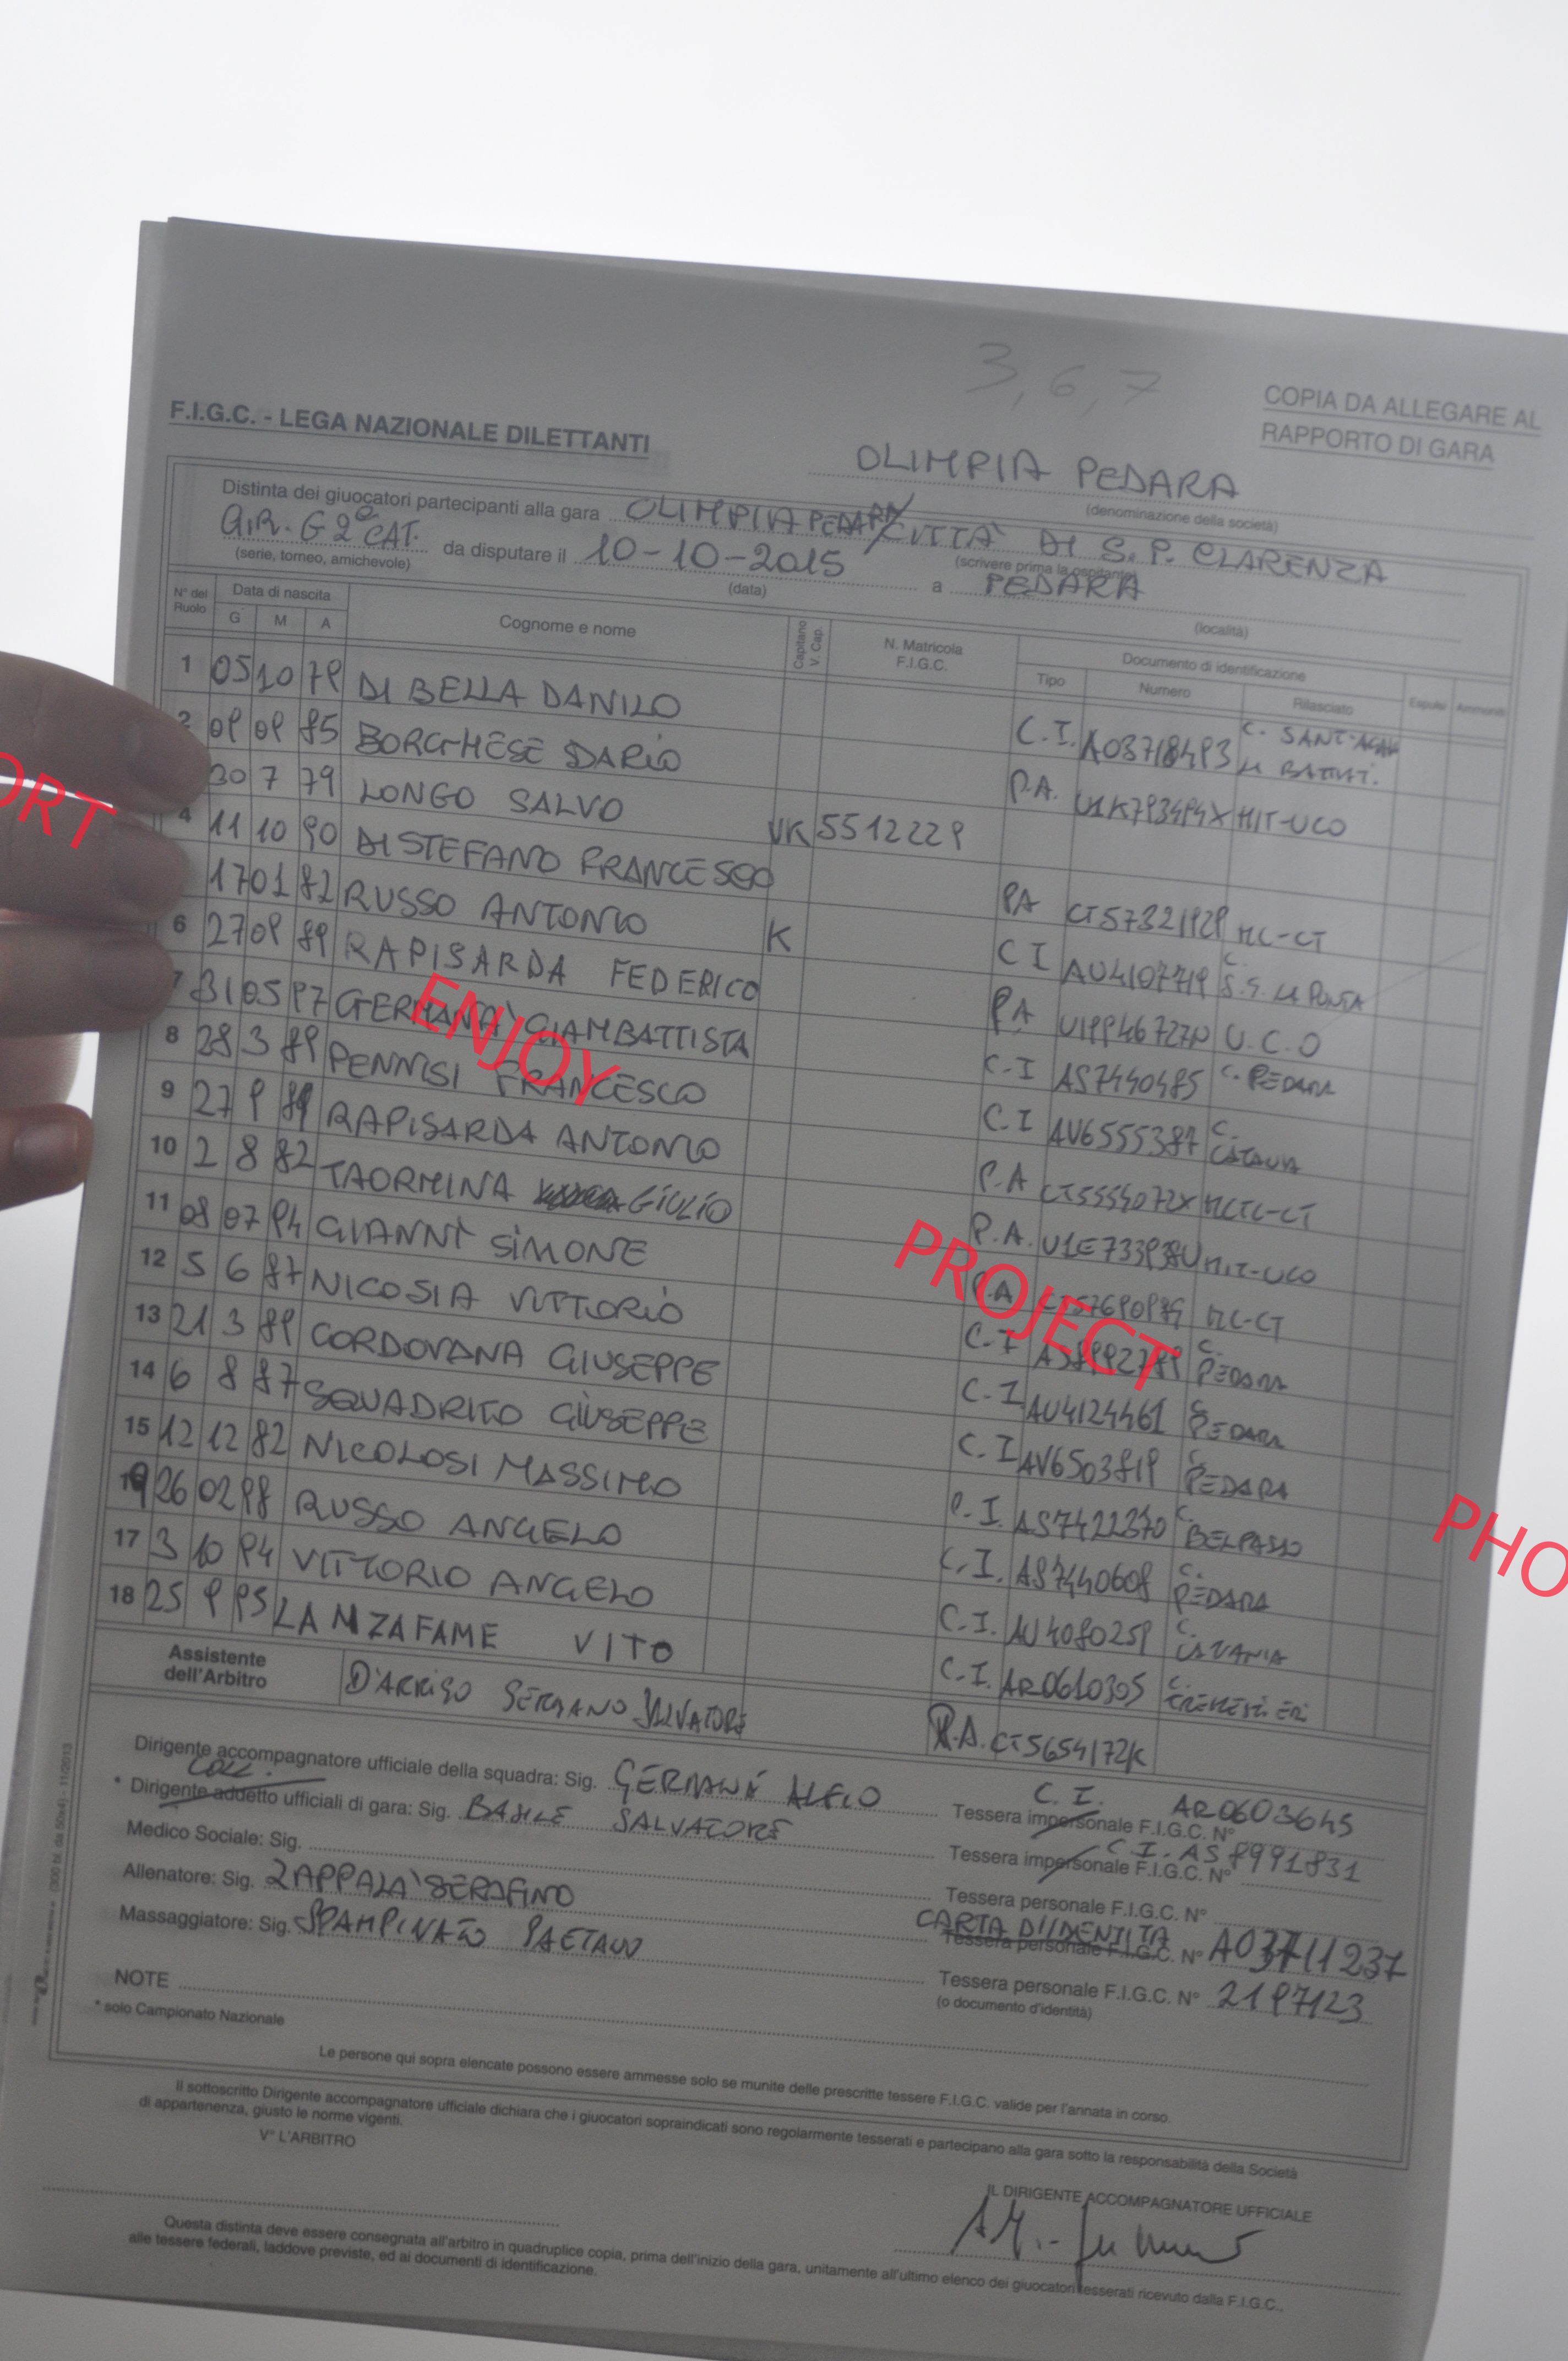 3, 6, 7
COPIA DA ALLEGARE AL
RAPPORTO DI GARA
F.I.G.C. - LEGA NAZIONALE DILETTANTI
OLIMPIA PEDARA
(denominazione della società)
Distinta dei giuocatori partecipanti alla gara OLIMPIA PEDARA/CITTA' DI S. P. CLARENZA
(scrivere prima la ospitante)
GIR. G 2ª CAT. da disputare il 10-10-2015 a PEDARA
(serie, torneo, amichevole) (data) (località)
N° del Ruolo Data di nascita G M A Cognome e nome Capitano V. Cap. N. Matricola F.I.G.C. Documento di identificazione Tipo Numero Rilasciato Espulsi Ammoniti
1 05 10 79 DI BELLA DANILO C.I. A03718493 C. SANT'AGATA LI BATTIATI.
2 09 09 85 BORGHESE DARIO P.A. U1K793494X MIT-UCO
30 7 79 LONGO SALVO VK 5512229
4 11 10 90 DI STEFANO FRANCESCO PA CT5732192P MC-CT
17 01 82 RUSSO ANTONIO K C I AU4107719 C. S.G. LA PUNTA
6 27 09 89 RAPISARDA FEDERICO PA U1PP46727N U.C.O
7 31 05 97 GERMANA' GIAMBATTISTA C.I AS7440485 C. PEDARA
8 28 3 89 PENNISI FRANCESCO C.I AV6555387 C. CATANIA
9 27 9 89 RAPISARDA ANTONIO P.A CT5554072X MCTC-CT
10 2 8 82 TAORMINA GIULIO P.A. U1E733938U MIT-UCO
11 08 07 94 GIANNÌ SIMONE P.A MC-CT
12 5 6 87 NICOSIA VITTORIO C.I C. PEDARA
13 21 3 89 CORDOVANA GIUSEPPE C.I AU4124461 C. PEDARA
14 6 8 87 SQUADRITO GIUSEPPE C.I AV6503819 C. PEDARA
15 12 12 82 NICOLOSI MASSIMO C.I. AS7422370 C. BELPASSO
19 26 02 98 RUSSO ANGELO C.I. AS7440608 C. PEDARA
17 3 10 94 VITTORIO ANGELO C.I. AU4080259 C. CATANIA
18 25 9 95 LANZAFAME VITO C.I. AR0610305 C. TREMESTIERI
Assistente dell'Arbitro D'ARRIGO SERGANO SALVATORE P.A. CT5654172K
Dirigente accompagnatore ufficiale della squadra: Sig. GERMANÀ ALFIO C.I. Tessera impersonale F.I.G.C. N° AR0603645
COLL.
* Dirigente addetto ufficiali di gara: Sig. BASILE SALVATORE Tessera impersonale F.I.G.C. N° C.I. AS8991831
Medico Sociale: Sig. Tessera personale F.I.G.C. N°
Allenatore: Sig. ZAPPALA' SERAFINO CARTA D'IDENTITA Tessera personale F.I.G.C. N° A03711237
Massaggiatore: Sig. SPAMPINATO GAETANO Tessera personale F.I.G.C. N° 2197123
(o documento d'identità)
NOTE
* solo Campionato Nazionale
Le persone qui sopra elencate possono essere ammesse solo se munite delle prescritte tessere F.I.G.C. valide per l'annata in corso.
Il sottoscritto Dirigente accompagnatore ufficiale dichiara che i giuocatori sopraindicati sono regolarmente tesserati e partecipano alla gara sotto la responsabilità della Società
di appartenenza, giusto le norme vigenti.
V° L'ARBITRO
IL DIRIGENTE ACCOMPAGNATORE UFFICIALE
Questa distinta deve essere consegnata all'arbitro in quadruplice copia, prima dell'inizio della gara, unitamente all'ultimo elenco dei giuocatori tesserati ricevuto dalla F.I.G.C.,
alle tessere federali, laddove previste, ed ai documenti di identificazione.
ORT
ENJOY
PROJECT
PHO